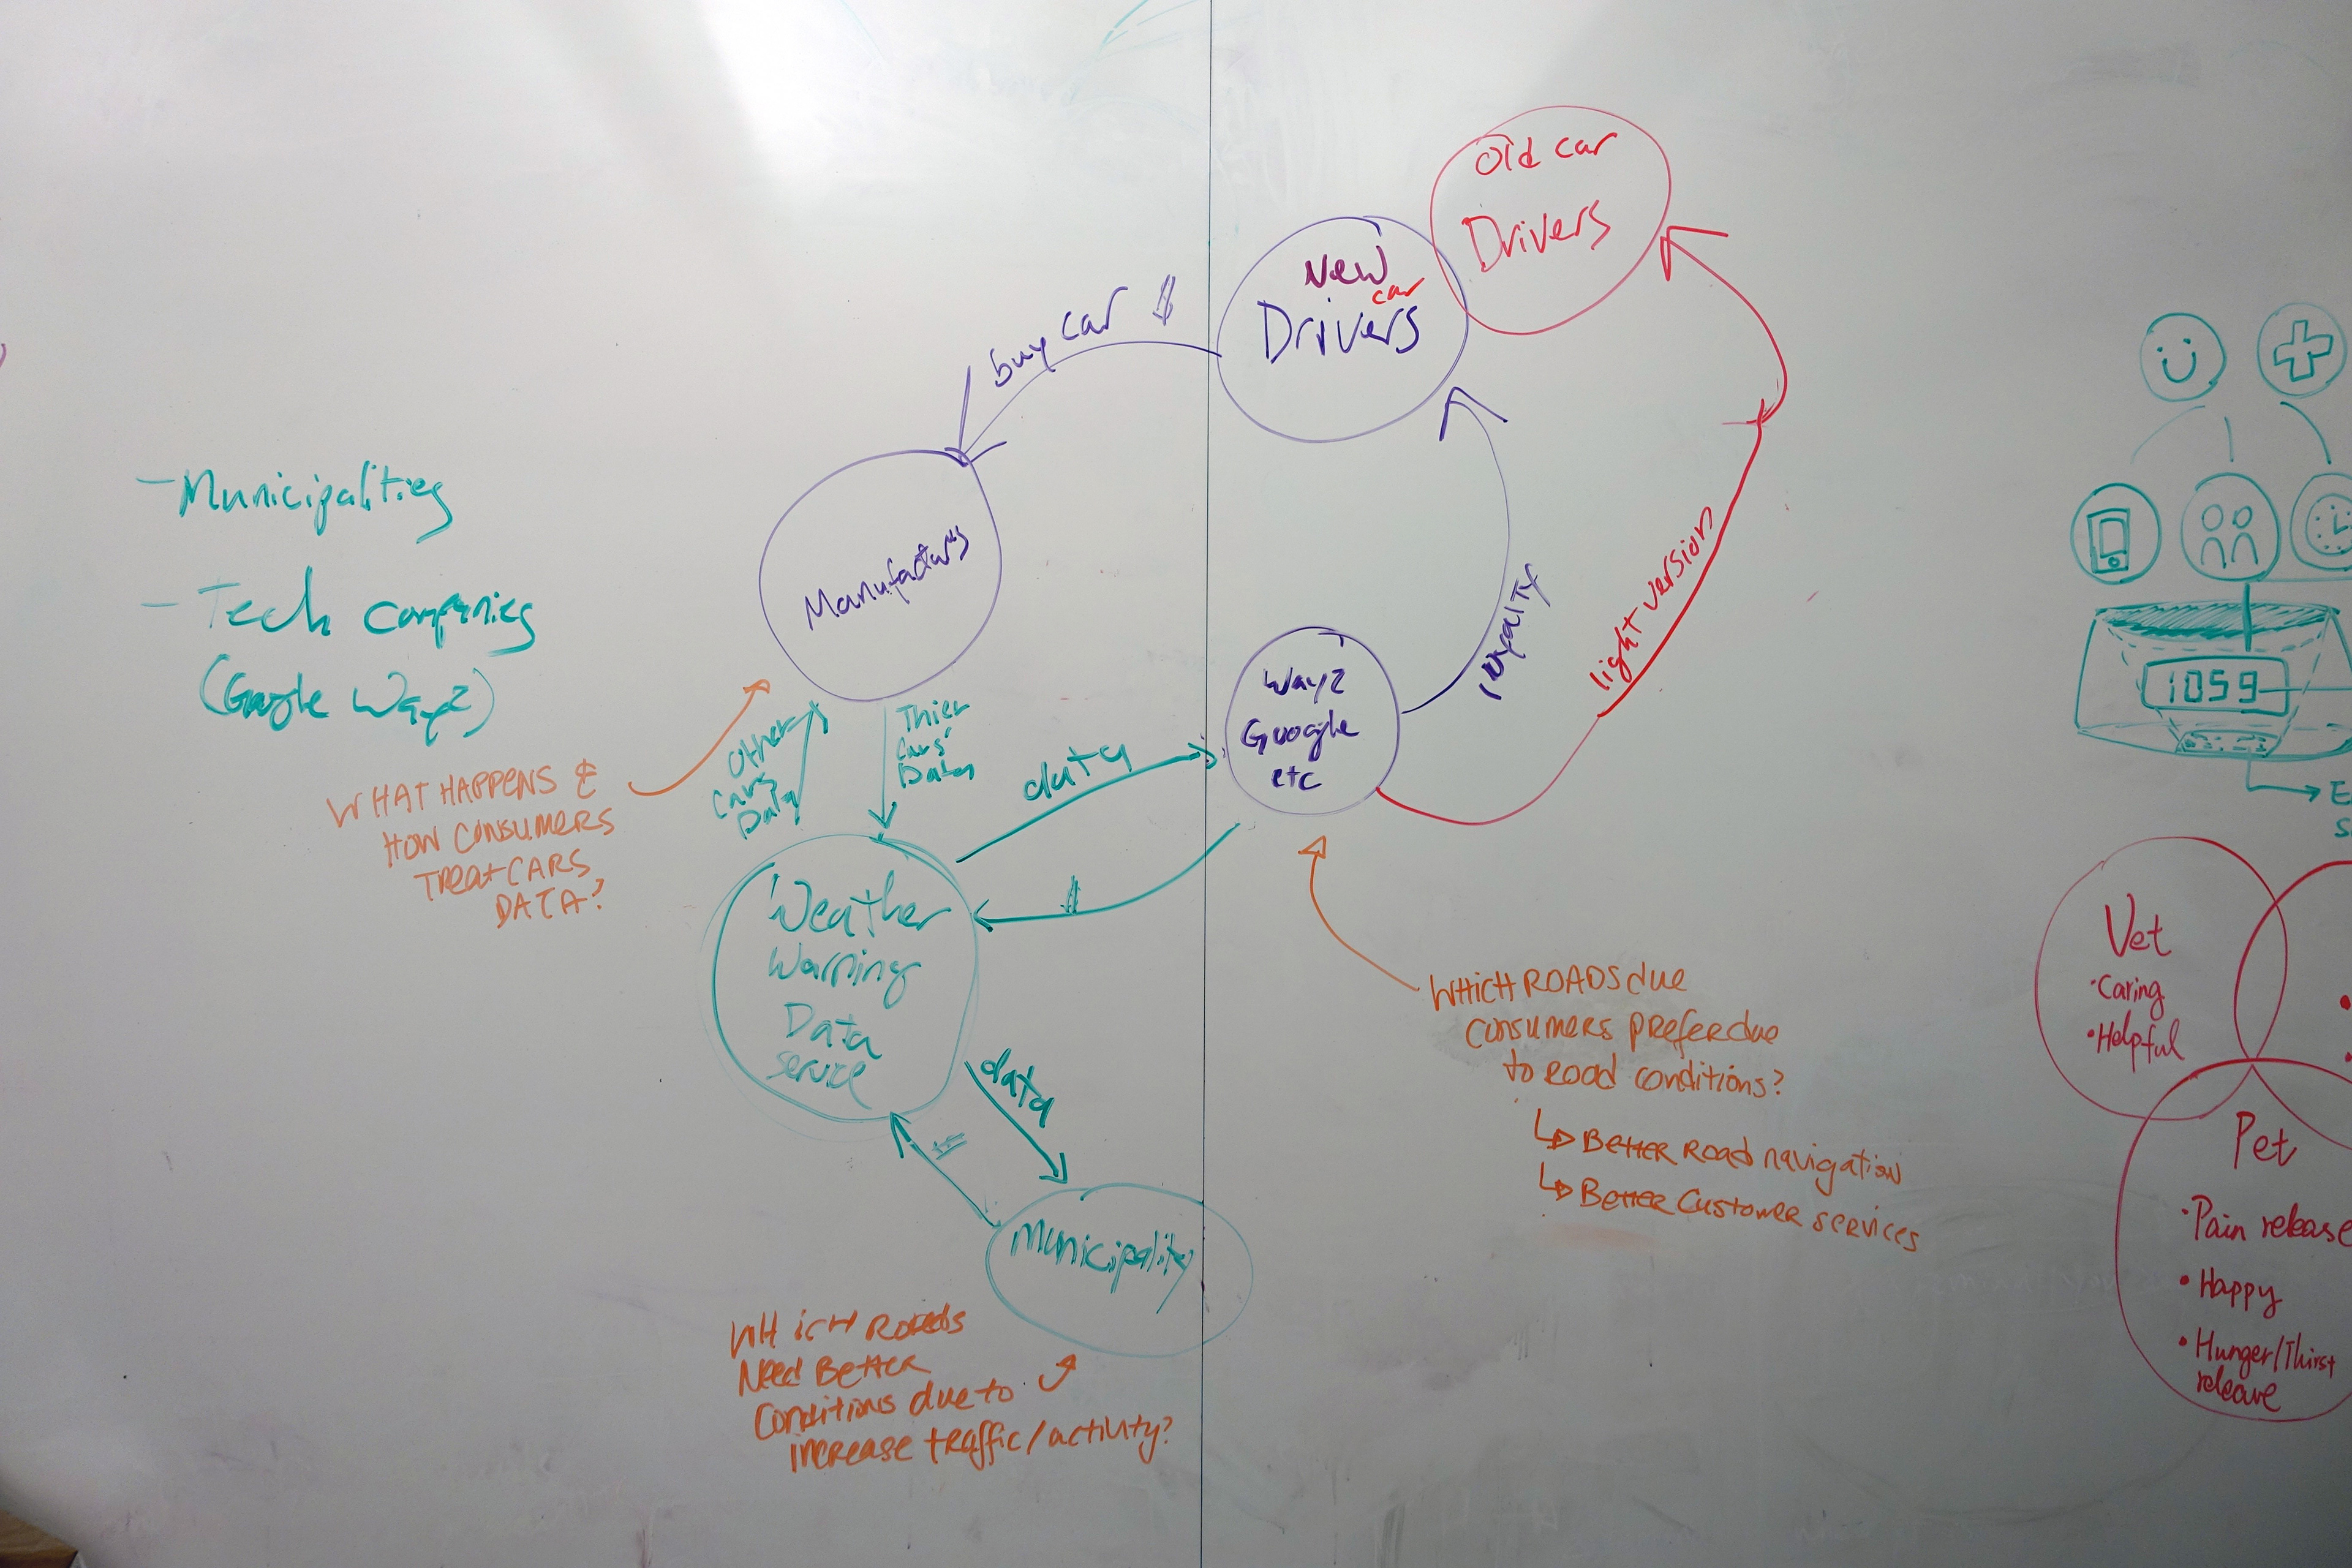 Old car
Drivers
New
car
Drivers
buy car $
Manufacturs
- Municipalities
- Tech companies
(Google Wayz)
WHAT HAPPENS &
HOW CONSUMERS
TREAT CARS
DATA?
Other
Cars
Data
Thier
Cars'
Data
data
$
Wayz
Google
etc
loyalty
light version
Weather
Warning
Data
service
data
Municipality
WHICH ROADS
NEED BETTER
CONDITIONS due to
INCREASE traffic/activity?
WHICH ROADS due
CONSUMERS PREFER due
to ROAD CONDITIONS?
BETTER ROAD navigation
BETTER CUSTOMER SERVICES
1059
E
S
Vet
•Caring
•Helpful
Pet
•Pain release
•Happy
•Hunger/Thirst
releave